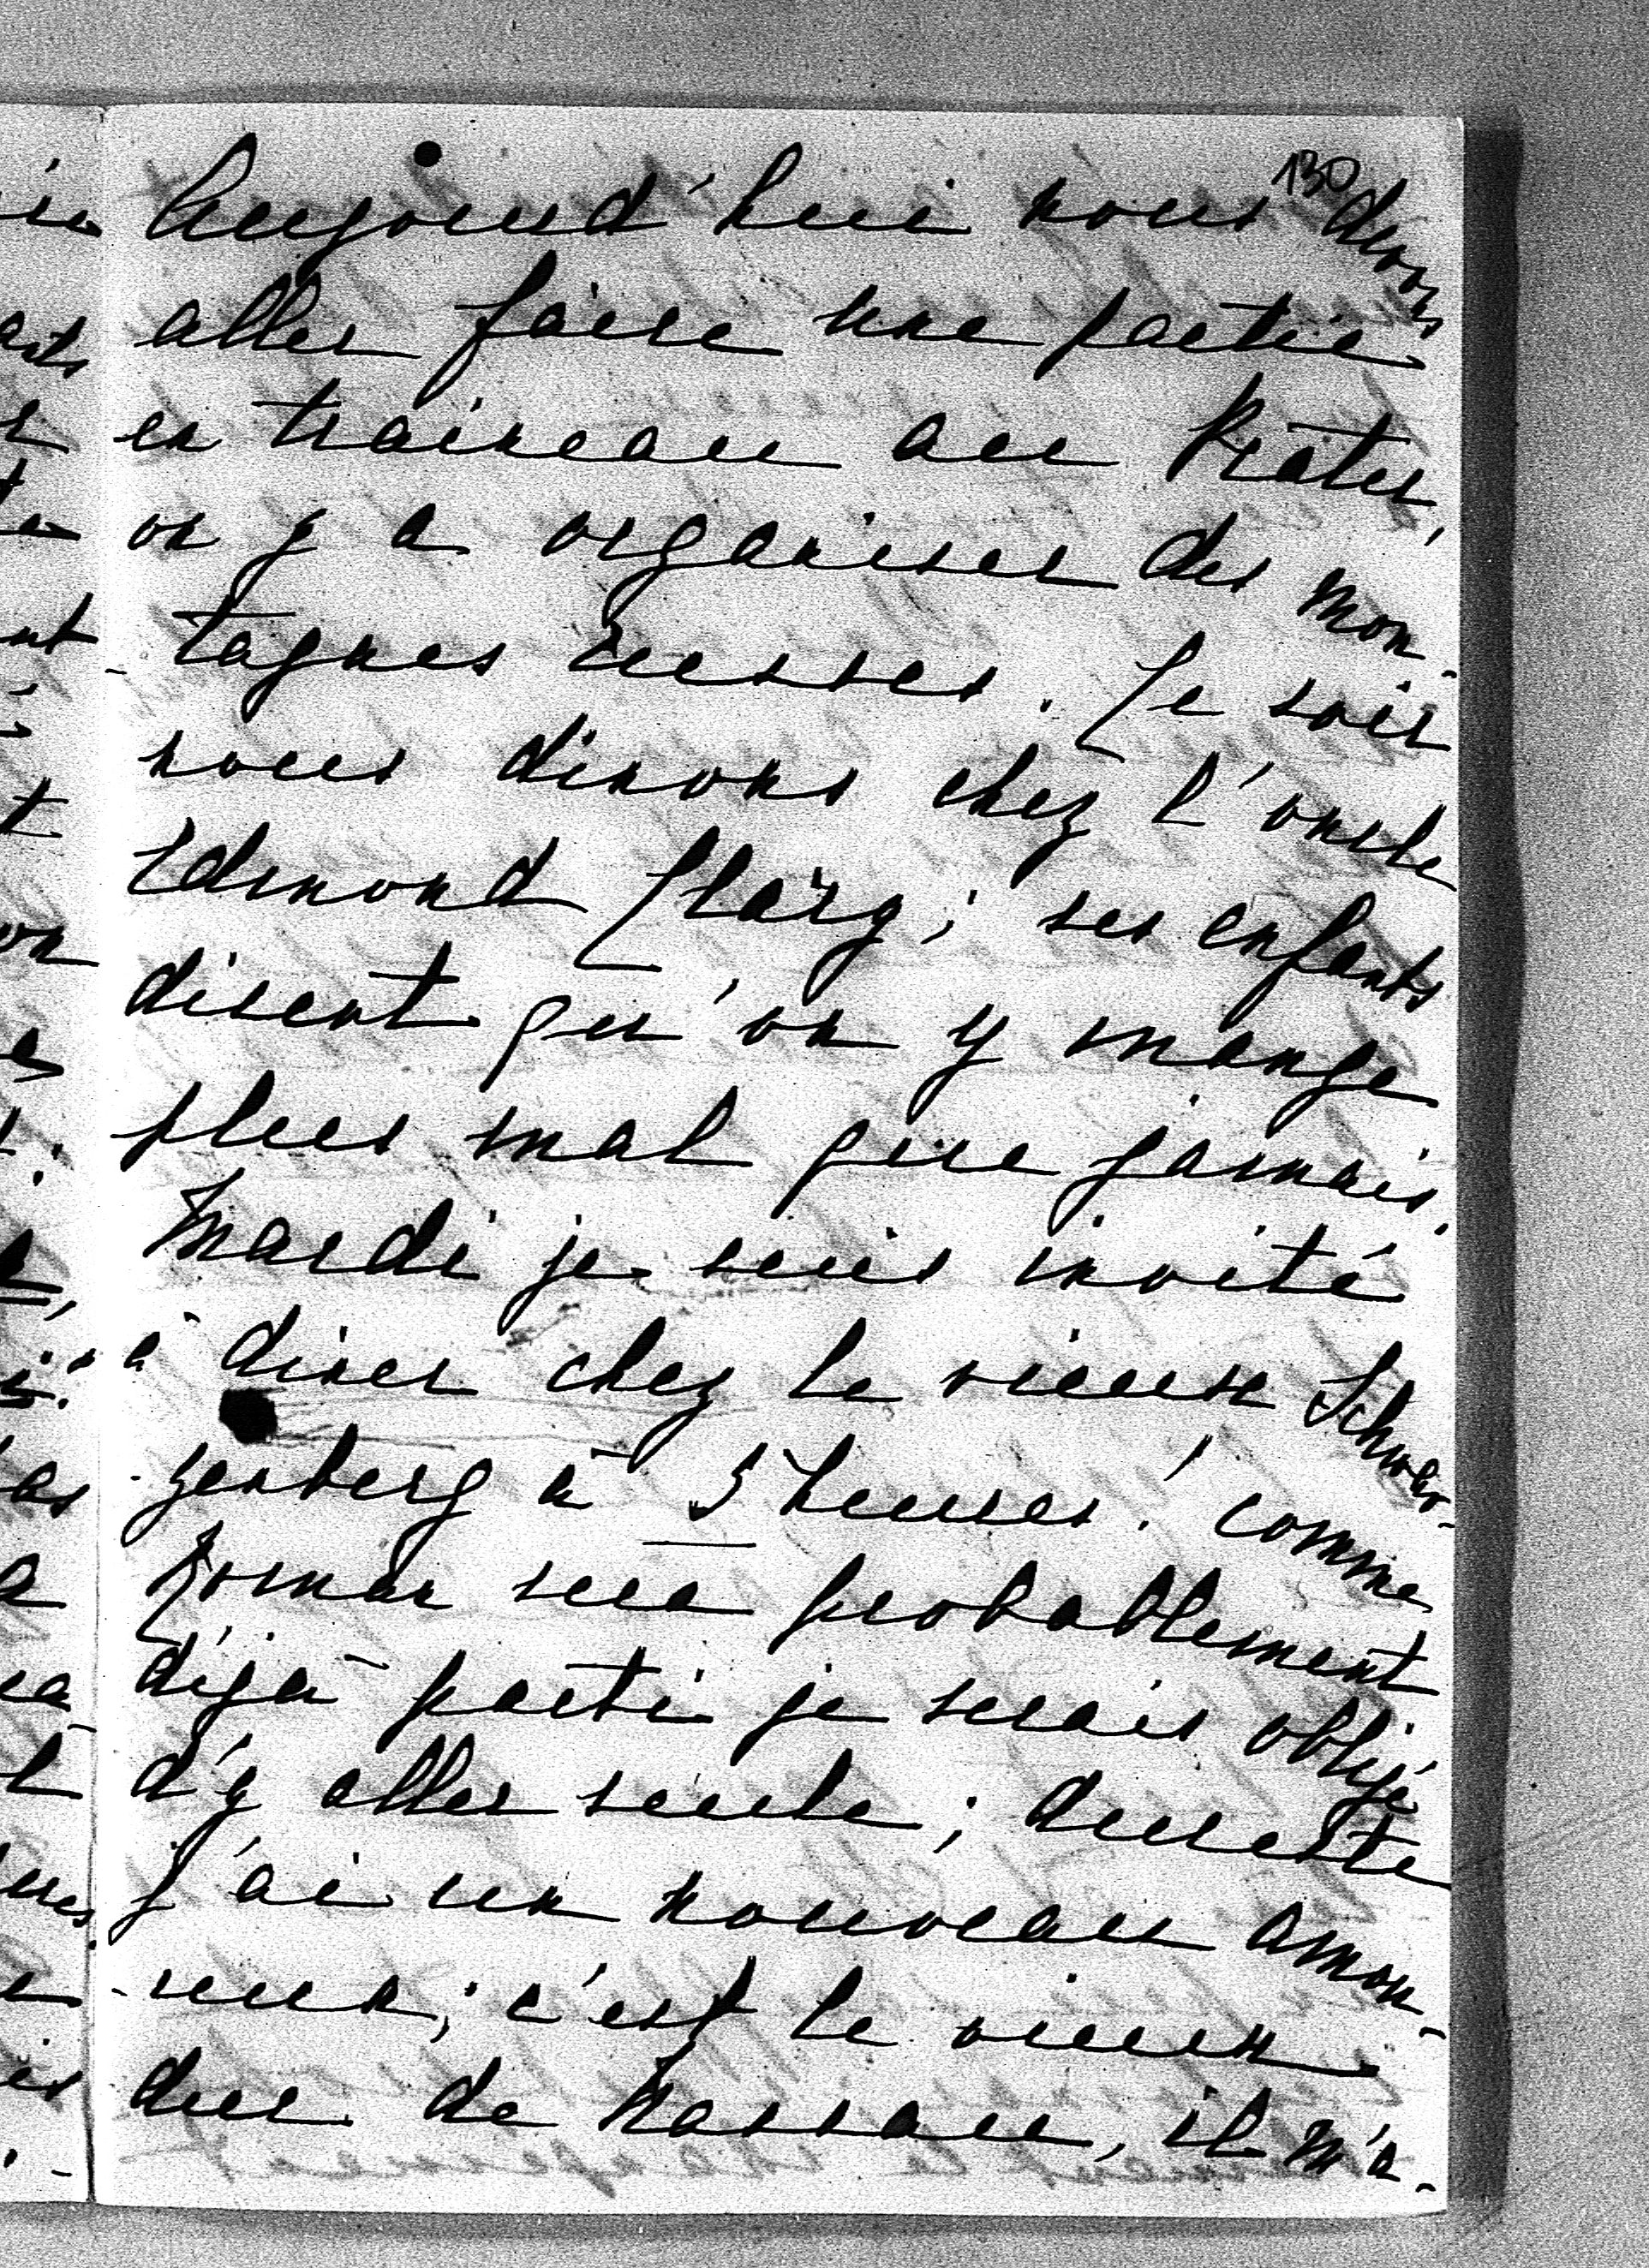 130
Aujourd'hui nous devons
aller faire une partie
en traineau au Prater,
on y a organiser des mon-
-tagnes russes. Le soir
nous dinons chez l'oncle
Edmond Clary; ses enfants
disent qu'on y mange
plus mal que jamais.
Mardi je suis invité
à diner chez le vieuse Schwar-
-zenberg à 5 heures! comme
sera probablement
déja parti je serais obligé
d'y aller seule; dureste
j'ai un nouveau amou-
-reux; c'est le vieux
duc de Nassau, il m'a-